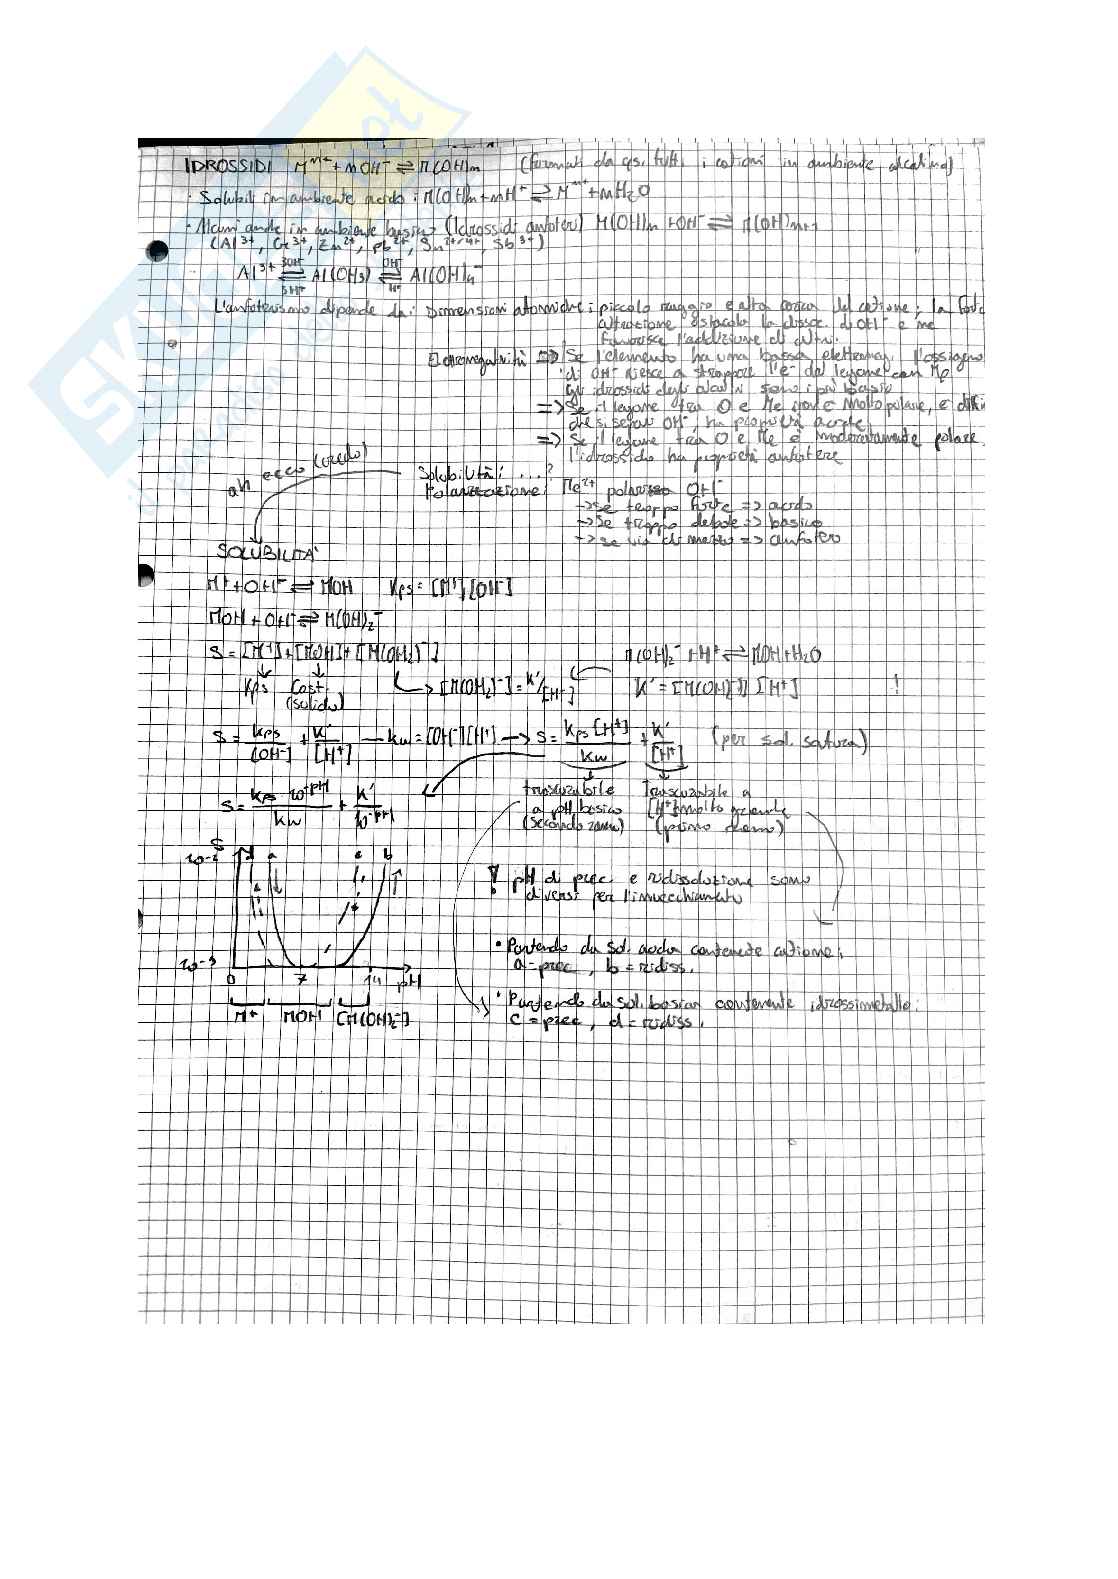 IDROSSIDI Mᵐ⁺ + mOH⁻ ⇌ M(OH)m (formati da qsi. tutti i cationi in ambiente alcalino)
· Solubili in ambiente acido: M(OH)m + mH⁺ ⇌ Mᵐ⁺ + mH₂O
· Alcuni anche in ambiente basico (Idrossidi anfoteri) M(OH)m + OH⁻ ⇌ M(OH)m+1
(Al³⁺, Cr³⁺, Zn²⁺, Pb²⁺, Sn²⁺/⁴⁺, Sb³⁺)
Al³⁺ 3OH⁻ ⇌ 3H⁺ Al(OH₃) OH⁻ ⇌ H⁺ Al(OH)₄⁻
L'anfoterismo dipende da: Dimensioni atomiche: piccolo raggio e alta carica del catione; la forte
attrazione ostacola la dissoc. di OH⁻ e ne
favorisce l'addizione di altri.
Elettronegatività => Se l'elemento ha una bassa elettroneg. l'ossigeno
di OH⁻ riesce a strappare l'e⁻ dal legame con Me
Gli idrossidi degli alcalini sono i più basici
=> Se il legame tra O e Me non è molto polare, è
che si separi OH⁻, ha proprietà acide
=> Se il legame tra O e Me è moderatamente polare
l'idrossido ha proprietà anfotere
ah ecco (credo)
Solubilità: ...?
Polarizzazione: Me²⁺ polarizza OH⁻
-> se troppo forte => acido
-> Se troppo debole => basico
-> se via di mezzo => anfotero
SOLUBILITA'
M⁺ + OH⁻ ⇌ MOH Kps = [M⁺][OH⁻]
MOH + OH⁻ ⇌ M(OH)₂⁻
S = [M⁺] + [MOH] + [M(OH₂)⁻] M(OH)₂⁻ + H⁺ ⇌ MOH + H₂O
Kps Cost. (solido) -> [M(OH₂)⁻] = K'/[H⁺] K' = [M(OH)₂⁻] [H⁺] !
S = Kps/[OH⁻] + K'/[H⁺] — Kw = [OH⁻][H⁺] -> S = Kps [H⁺]/Kw + K'/[H⁺] (per sol. satura)
S = Kps · 10^-pH / Kw + K'/10^-pH
trascurabile a pH basico (secondo ramo)
Trascurabile a [H⁺] molto grande (primo ramo)
S
10-2 d a c b
10-9
0 7 14 pH
M⁺ MOH [M(OH)₂⁻]
! pH di prec. e ridissoluzione sono
diversi per l'invecchiamento
• Partendo da sol. acida contenente catione:
a = prec, b = ridiss.
• Partendo da sol. basica contenente idrossimetallo:
c = prec, d = ridiss.